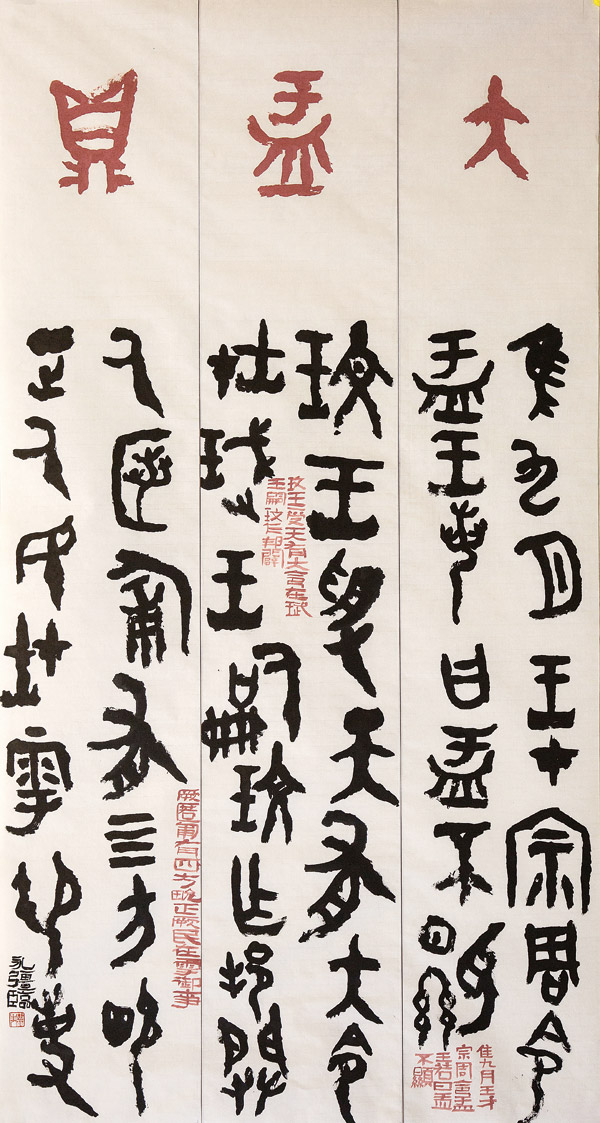 大盂鼎
隹九月王才宗周令
盂王若曰盂不顯
隹九月王才
宗周令盂
王若曰盂
不顯
玟王受天有大令
在珷王嗣玟乍邦闢
玟王受天有大令在珷
王嗣玟乍邦闢
厥匿匍有四方畯
正厥民在雩御事
厥匿匍有四方畯正厥民在雩御事
永疆臨